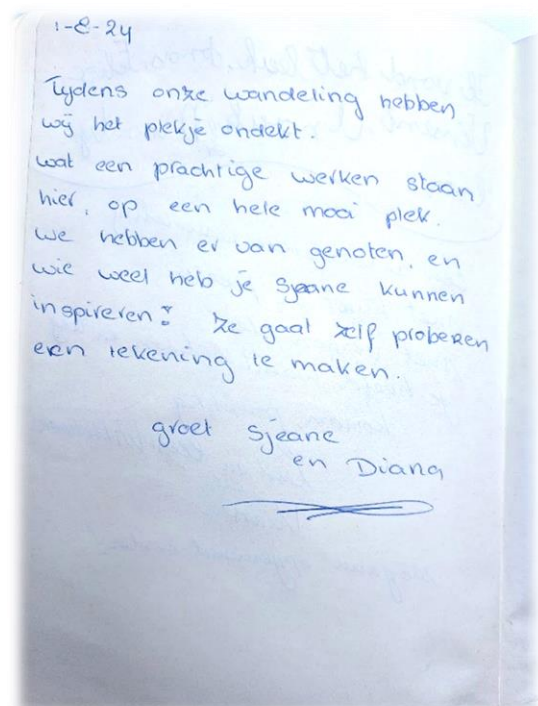 1-8-24
Tijdens onze wandeling hebben
wij het plekje ondekt.
wat een prachtige werken staan
hier, op een hele mooi plek.
we hebben er van genoten, en
wie weet heb je Sjeane kunnen
inspireren! Ze gaat zelf proberen
een tekening te maken.
groet Sjeane
en Diana